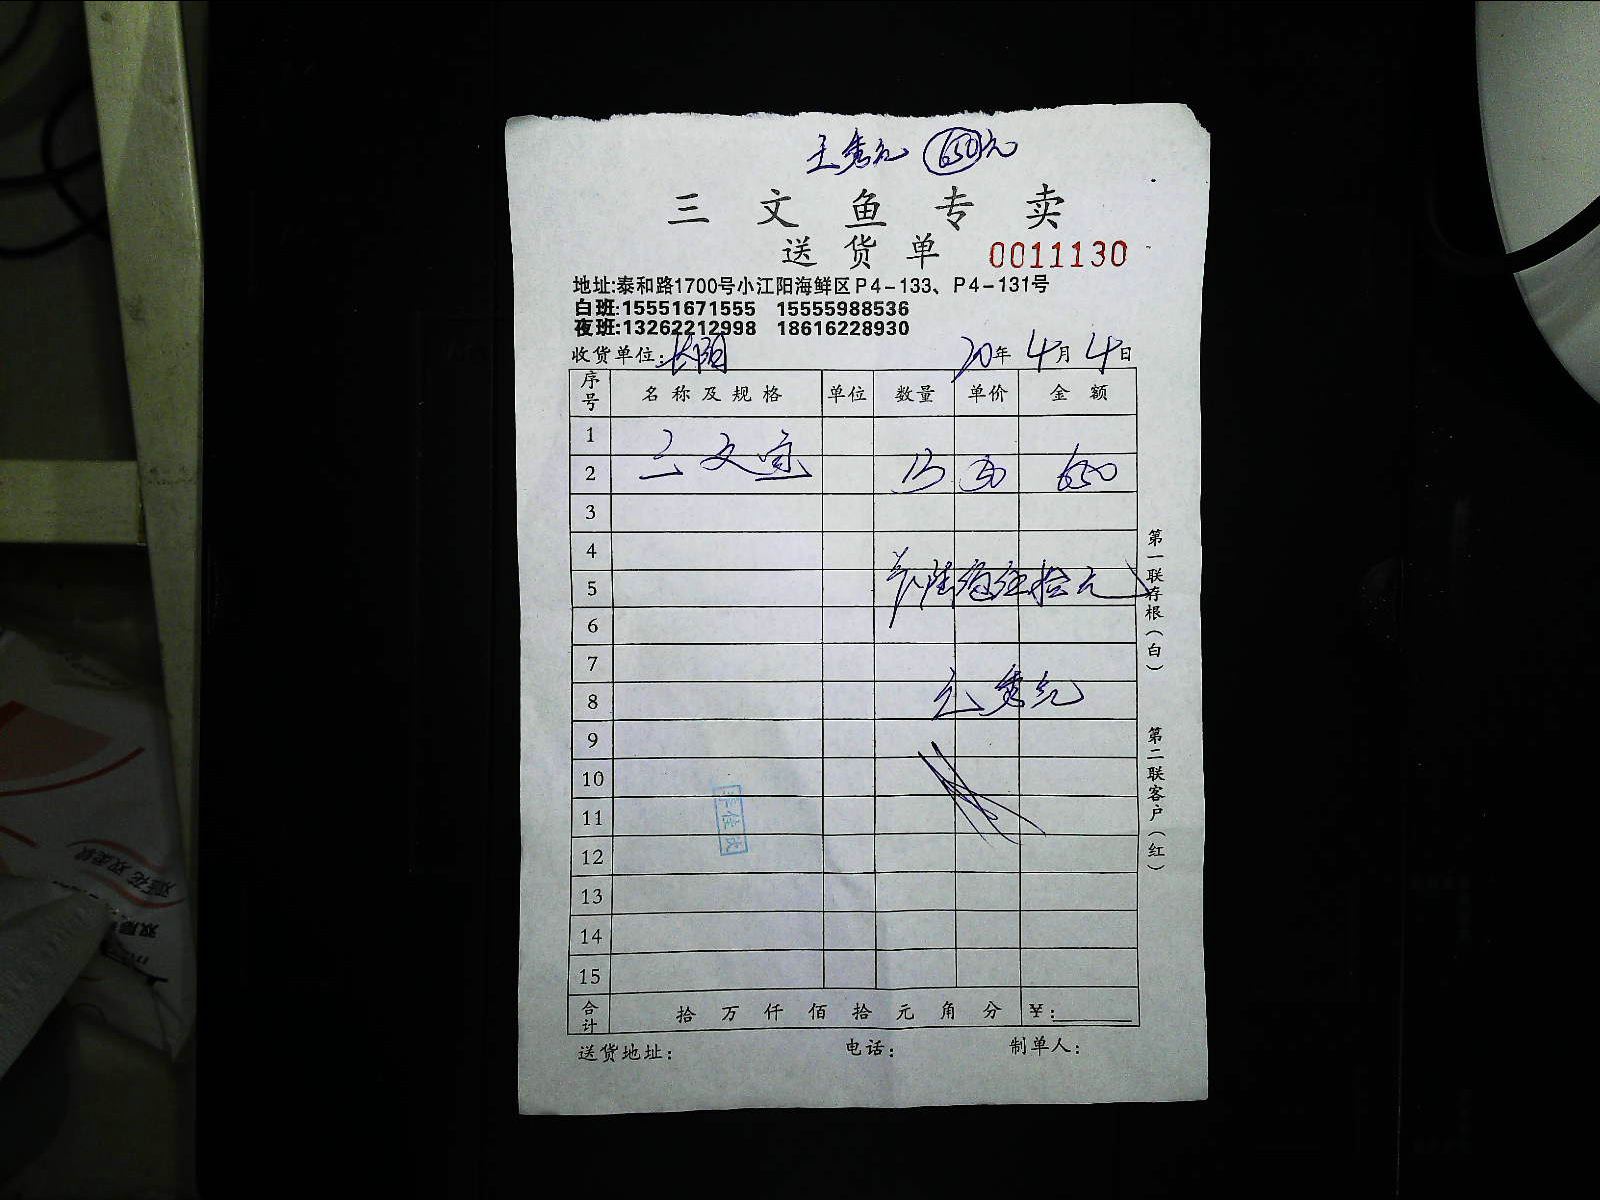 王秀元 650元
三文鱼专卖
送货单 0011130
地址:泰和路1700号小江阳海鲜区P4-133、P4-131号
白班:15551671555 15555988536
夜班:13262212998 18616228930
收货单位: 20年4月4日
序号 名称及规格 单位 数量 单价 金额
1
2 三文鱼 13 50 650
3
4
5 陆佰伍拾元
6
7
8 王秀元
9
10
11
12
13
14
15
合计 拾万仟佰拾元角分 ¥:
送货地址: 电话: 制单人:
第一联存根(白)
第二联客户(红)